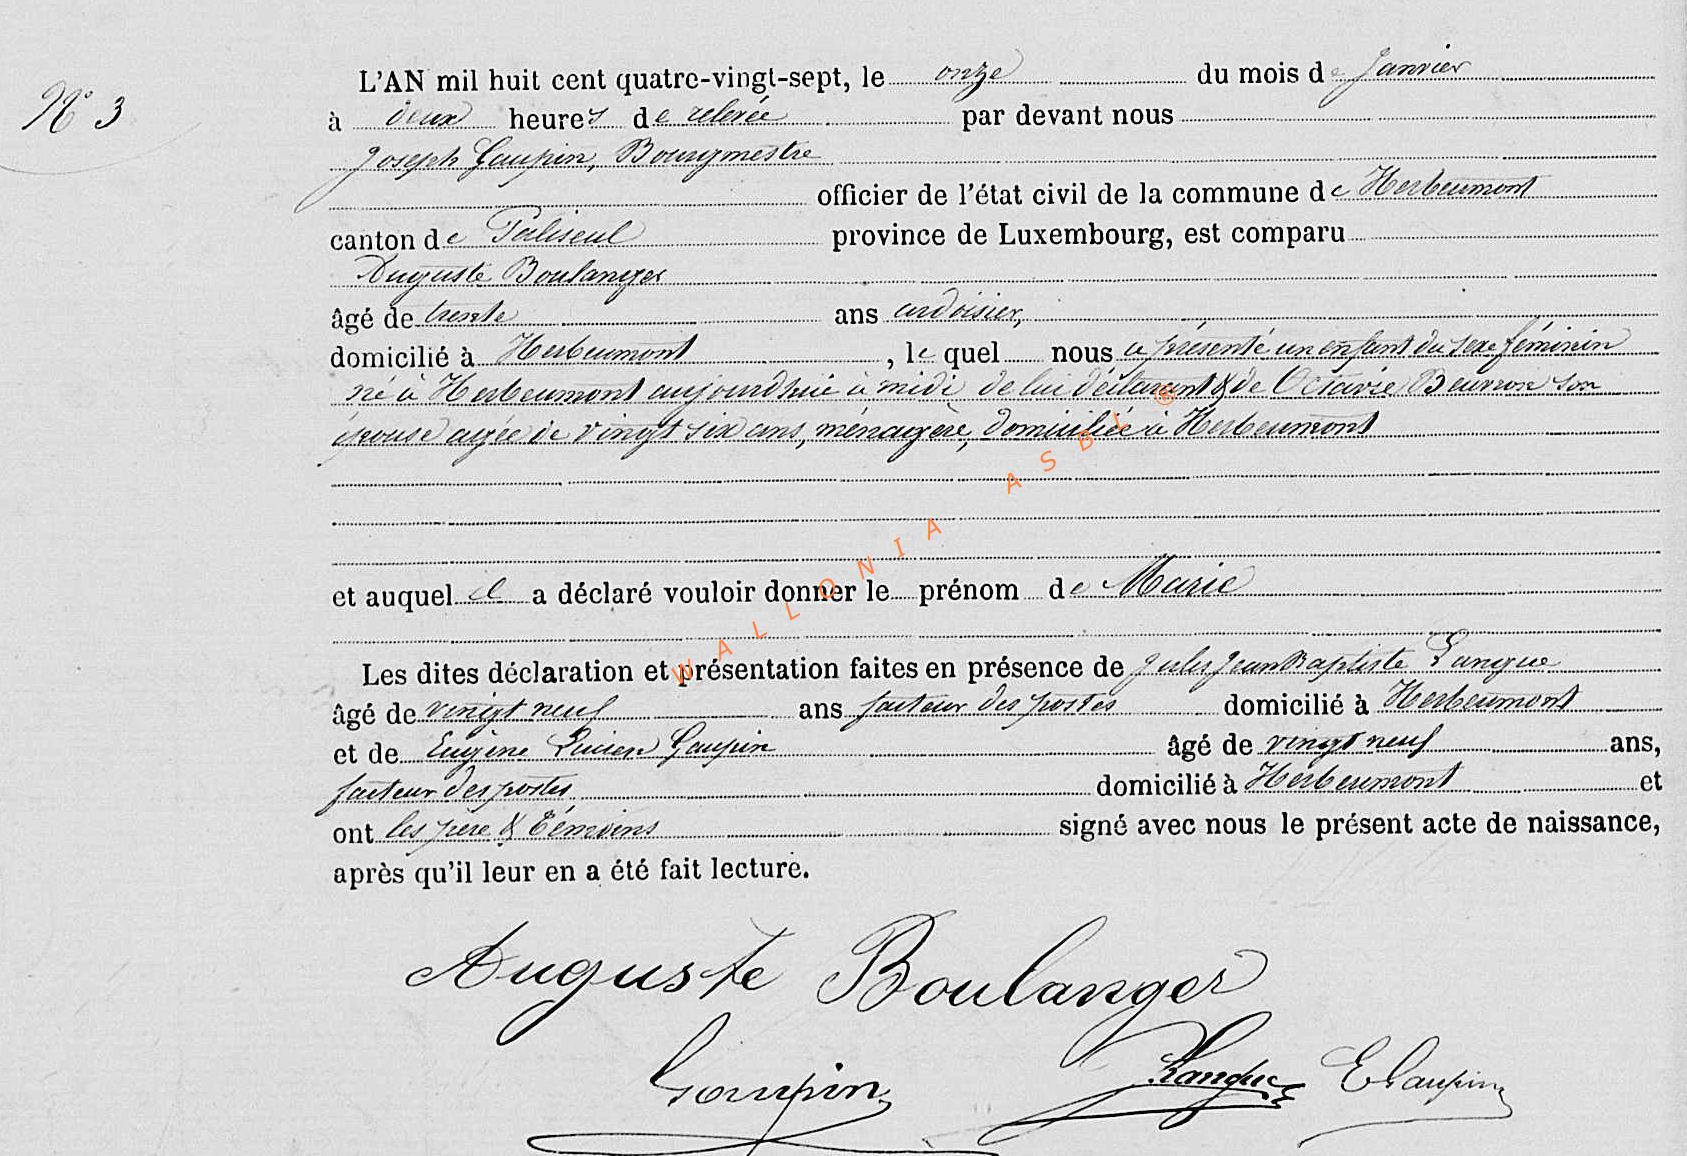 N° 3
L'AN mil huit cent quatre-vingt-sept, le onze du mois de Janvier
à deux heures de relevée par devant nous
Joseph Gaupin, Bourgmestre
officier de l'état civil de la commune de Herbeumont
canton de Paliseul province de Luxembourg, est comparu
Auguste Boulanger
âgé de trente ans ardoisier,
domicilié à Herbeumont, le quel nous a présenté un enfant du sexe féminin
né à Herbeumont aujourd'hui à midi de lui déclarant & de Octavie Beuvron son
épouse agée de vingt six ans, ménagère, domiciliée à Herbeumont
et auquel il a déclaré vouloir donner le prénom de Marie
Les dites déclaration et présentation faites en présence de Jules Jean Baptiste Langue
âgé de vingt neuf ans facteur des postes domicilié à Herbeumont
et de Eugène Lucien Gaupin âgé de vingt neuf ans,
facteur des postes, domicilié à Herbeumont et
ont les père & témoins signé avec nous le présent acte de naissance,
après qu'il leur en a été fait lecture.
WALLONIA ASBL ®
Auguste Boulanger
Gaupin Langue E Gaupin